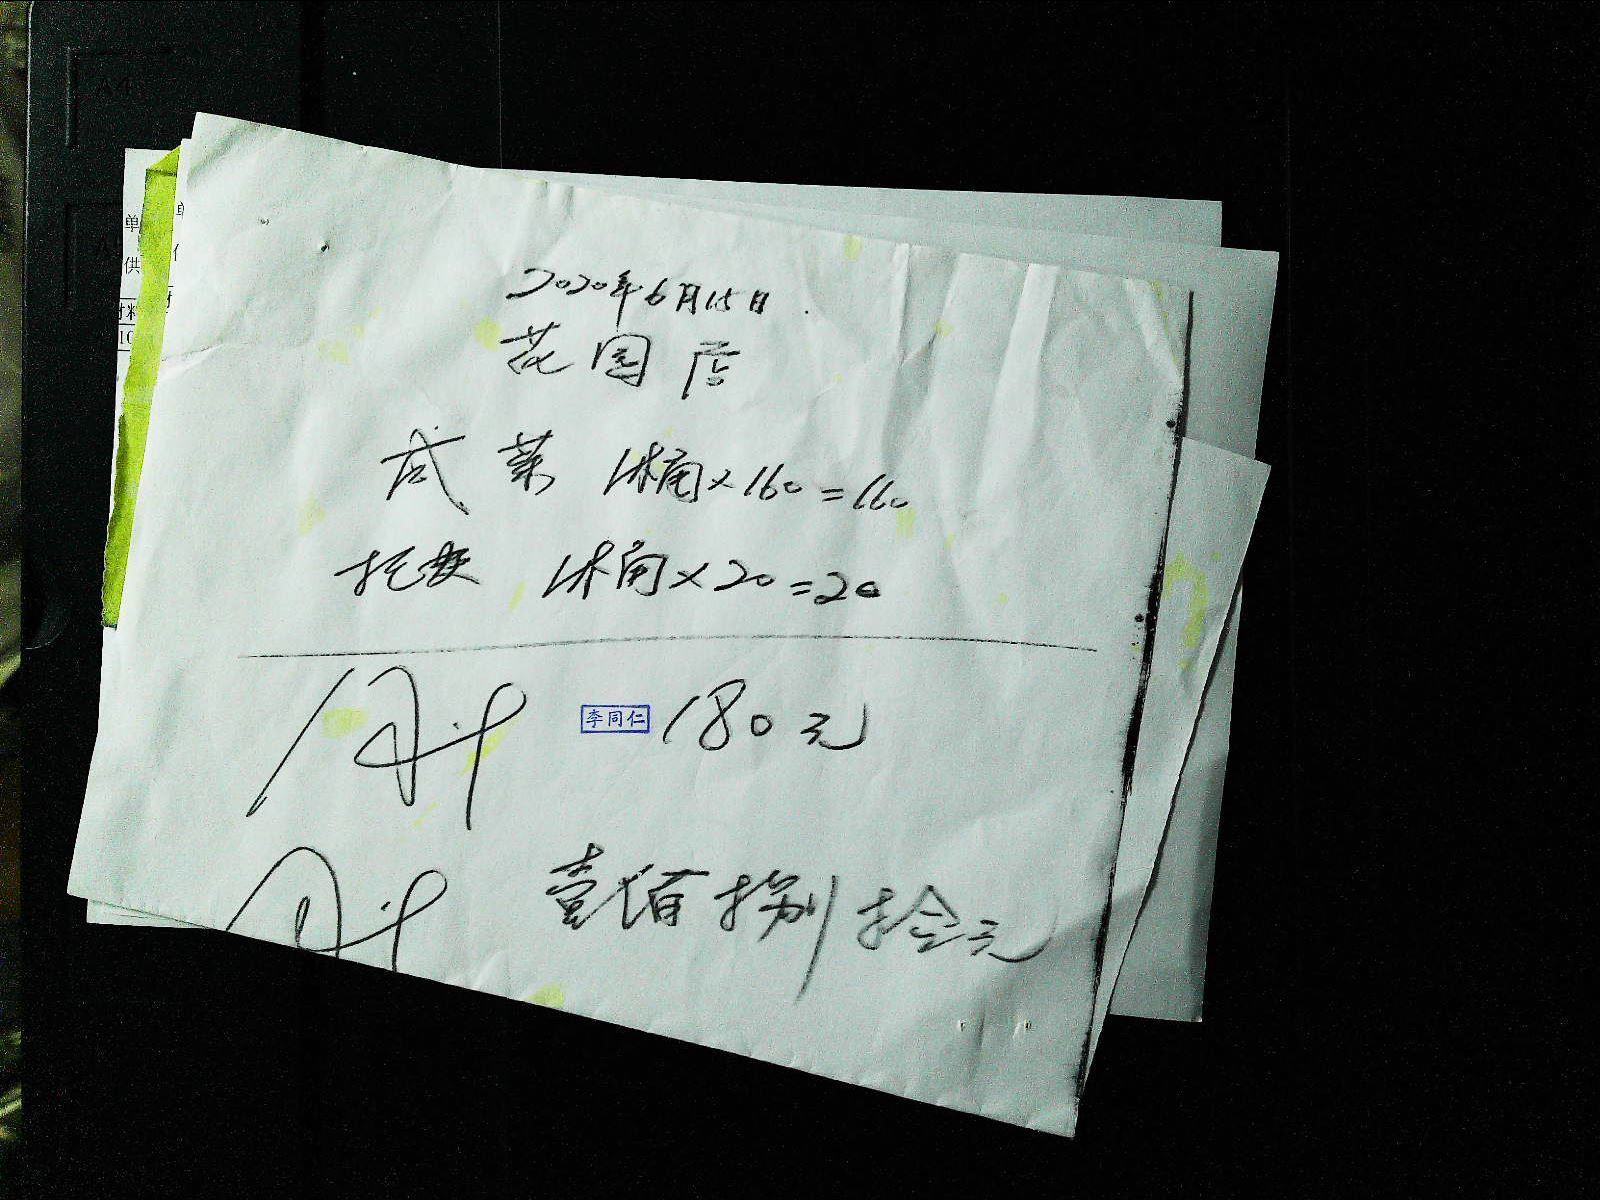 A4
单
供
材料
10
单
2020年6月15日
花园店
咸菜 1桶×160=160
托费 1桶×20=20
李同仁 180元
壹佰捌拾元